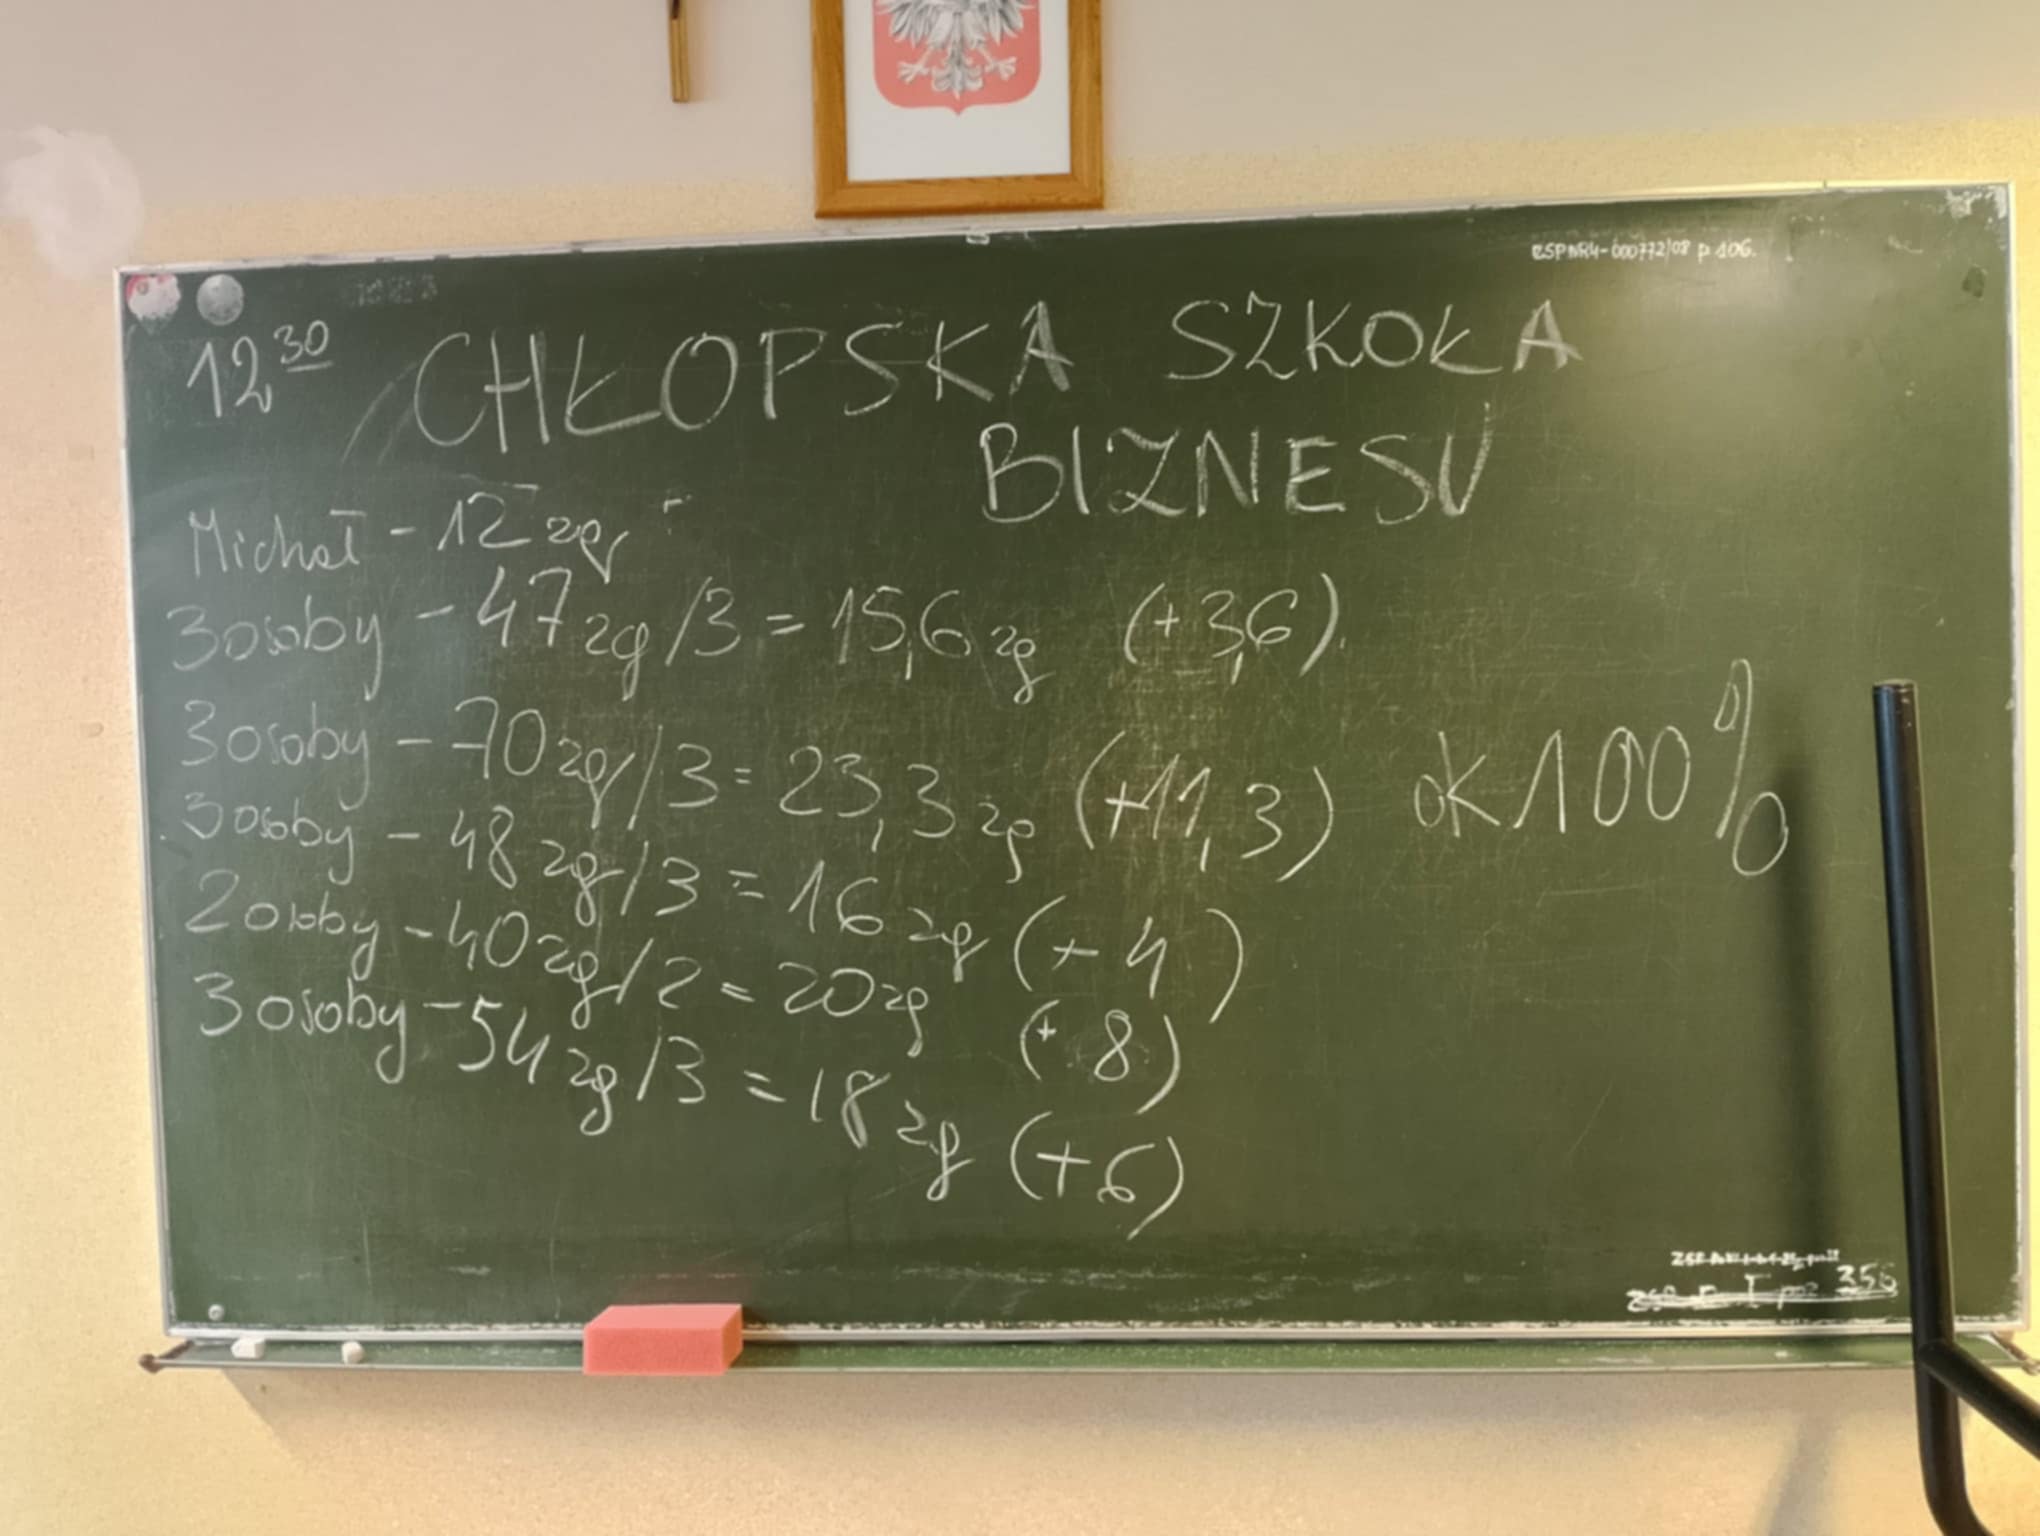 BSPNR4-000772/08 p 106.
12³⁰ CHŁOPSKA SZKOŁA
BIZNESU
Michał - 12 zg
3 osoby - 47 zg /3 = 15,6 zg (+3,6)
3 osoby - 70 zg /3 = 23,3 zg (+11,3) ok 100%
3 osoby - 48 zg /3 = 16 zg (+4)
2 osoby - 40 zg /2 = 20 zg (+8)
3 osoby - 54 zg /3 = 18 zg (+6)
I poz 356